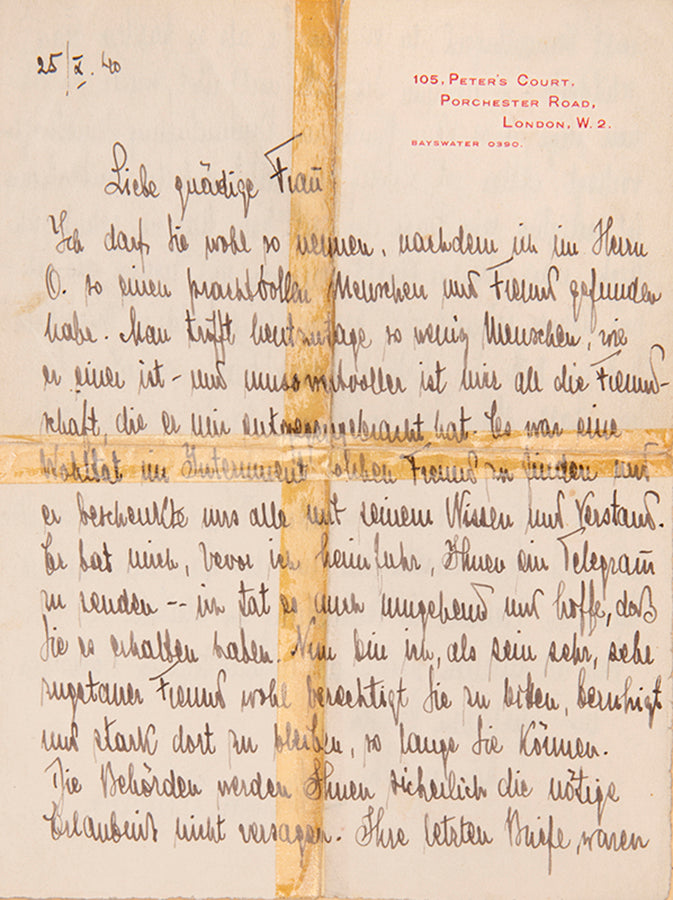 25/X. 40
105, PETER'S COURT.
PORCHESTER ROAD,
LONDON, W. 2.
BAYSWATER 0390.
Liebe gnädige Frau
Ich darf Sie wohl so nennen, nachdem ich im Herrn
O. so einen prachtvollen Menschen und Freund gefunden
habe. Man trifft heutzutage so wenig Menschen, wie
er einer ist – und umso wertvoller ist mir all die Freund-
schaft, die er mir entgegengebracht hat. Es war eine
Wohltat im Internment solchen Freund zu finden und
er beschenkte uns alle mit seinem Wissen und Verstand.
Er bat mich, bevor ich heimfuhr, Ihnen ein Telegram̄
zu senden -- ich tat es auch umgehend und hoffe, daß
Sie es erhalten haben. Nun bin ich, als sein sehr, sehr
zugetaner Freund wohl berechtigt Sie zu bitten, beruhigt
und stark dort zu bleiben, so lange Sie können.
Die Behörden werden Ihnen sicherlich die nötige
Erlaubnis nicht versagen. Ihre letzten Briefe waren